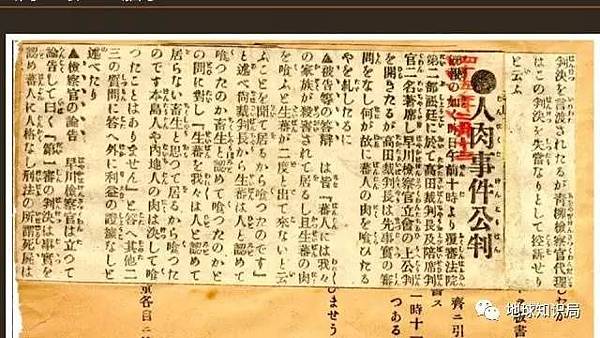 判決を言渡されたるが青柳檢察官代理
はこの判決を失當なりとして控訴せり
と云ふ
人肉事件公判
の如く昨日午前十時より覆審法院
第二部法廷に於て高田裁判長及陪席判
官二名著席し早川檢察官立會の上公判
を開きたるが高田裁判長は先事實の審
問をなし何が故に蕃人の肉を喰ひたる
やを糺したるに
▲被告等の答辯 は皆『蕃人には我々
の家族が殺害されて居るし且生蕃の肉
を喰ふと生蕃が二度と出て來ないと云
ふことを聞て居るから喰つたのです』
と述べ尚裁判長から生蕃は人と認めて
喰つたのか畜生として喰つたのかと
の問に對し『生蕃は我々は人と認めて
居らない畜生と思つて居るから喰つた
のです本島人や內地人の肉は決して喰
つたことはありません』と答へ其他二
三の質問に答へ外に利益の證據なしと
述べたり
▲檢察官の論告 早川檢察官は立つて
論告して曰く『第一審の判決は事實を
認め蕃人に人格なし刑法の所謂死屍は
齊ニ引
一時十
つある
しませう
地球知识局